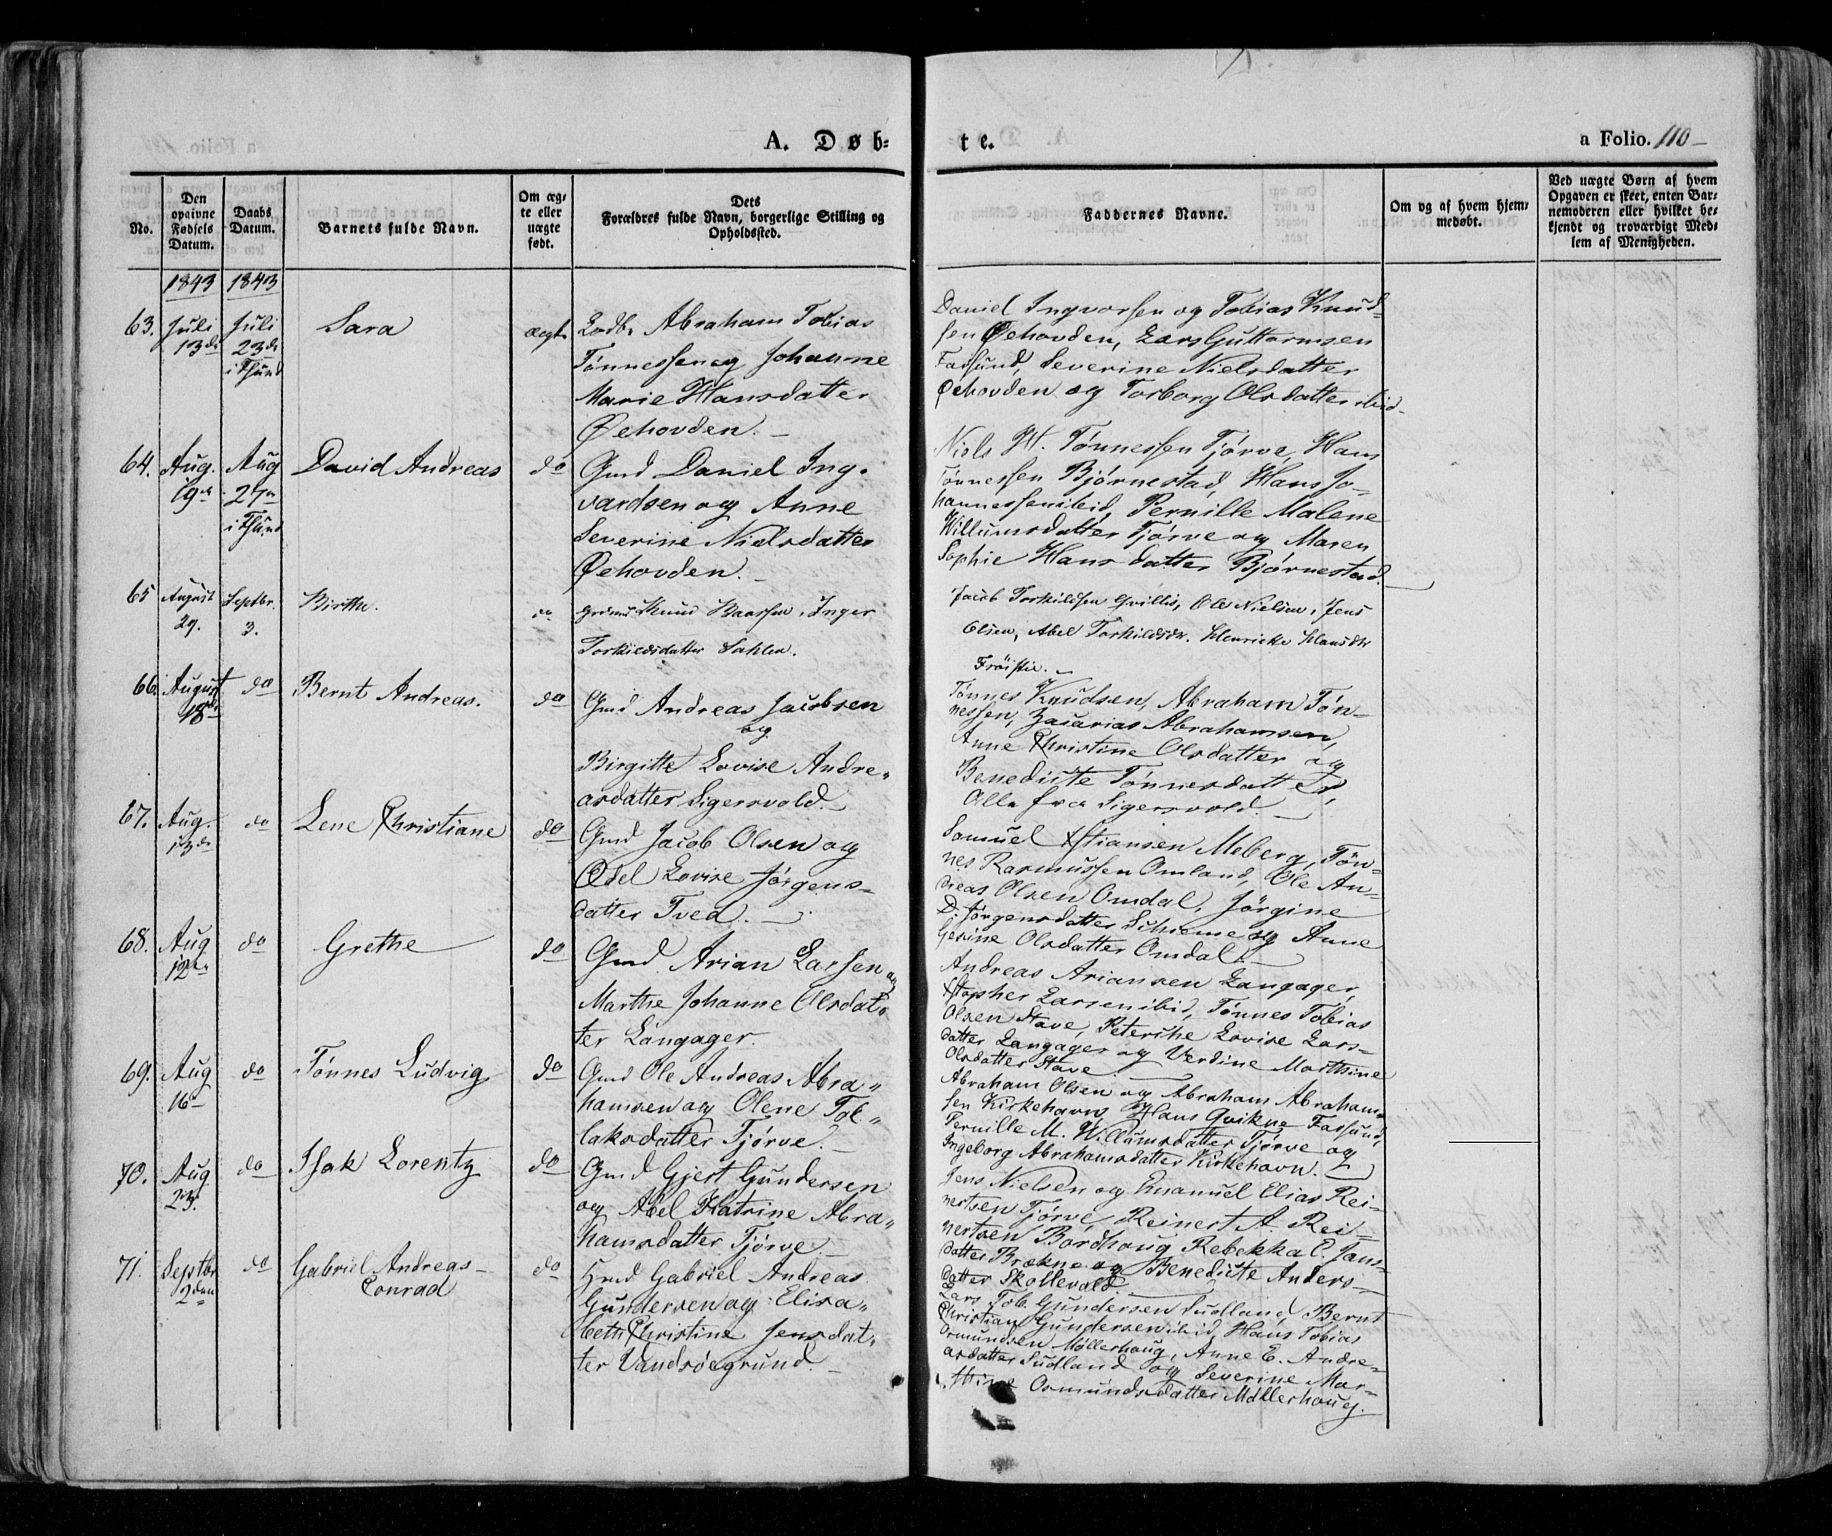 A. Døb-
te.
a Folio. 110
No.
Den opgivne Fødsels Datum.
Daabs Datum.
Barnets fulde Navn.
Om ægte eller uægte født.
Dets Forældres fulde Navn, borgerlige Stilling og Opholdssted.
Faddernes Navne.
Om og af hvem hjemmedøbt.
Ved uægte Børn af hvem Opgaven er skeet, enten Barnemoderen eller hvilket bekjendt og troværdigt Medlem af Menigheden.
1843 1843
63. Juli 13de
Juli 23de i Fsund
Sara
ægte
Abraham Tobias
Tønnessen og Johanne
Marie Hansdatter
Øehovden.
Daniel Ingvorsen og Tobias Knud-
sen Øehovden, Lars Guttormsen
Farsund, Severine Nielsdatter
Øehovden og Torborg Olsdatter ibid.
64. Aug. 19de
Aug 27de i Fsund
David Andreas
do
Gmd Daniel Ing-
vardsen og Anne
Severine Nielsdatter
Øehovden.
Niels H. Tønnessen Tjørve, Hans
Tønnessen Bjørnestad, Hans Jo-
hannessen ibid, Pernille Malene
Willumsdatter Tjørve og Maren
Sophie Hansdatter Bjørnestad.
65 August 29.
Septbr. 3.
Birthe.
do
Knud Baarsen, Inger
Torkildsdatter Sahlen.
Jacob Torkildsen Qvillis, Ole Nielsen, Jens
Olsen, Abel Torkildsdr. Henrickke Hansdtr
66. August 18de
do
Bernt Andreas.
do
Gmd Andreas Jacobsen
og
Birgitte Lovise Andre-
asdatter Sigersvold.
Tønnes Knudsen, Abraham Tøn-
nessen, Zacarias Abrahamsen,
Anne Christine Olsdatter og
Benedicte Tønnesdatter,
Alle fra Sigersvold.
67. Aug. 13de
do
Lene Christiane
do
Gmd Jacob Olsen og
Odel Lovise Jørgens-
datter Tved.
Samuel Xstiansen Meberg, Tøn-
nes Rasmussen Omland, Ole An-
dreas Olsen Omdal, Jørgine
D. Jørgensdatter og Anne
Gesine Olsdatter Omdal.
68. Aug 12te
do
Grethe
do
Gmd. Arian Larsen og
Marthe Johanne Olsdat-
ter Langager.
Andreas Ariansen Langager,
Xstopher Larsen ibid, Tønnes Tobias
Olsen Stave, Peterike Lovise Lars-
datter Langager og Verdine Marthine
Olsdatter Stave.
69. Aug 16
do
Tønnes Ludvig
do
Gmd Ole Andreas Abra-
hamsen og Olene Tol-
laksdatter Tjørve.
Abraham Olsen og Abraham Abraham-
sen Kirkehavn, Hans Qvikne Farsund,
Pernille M. Willumsdatter Tjørve og
Ingeborg Abrahamsdatter Kirkehavn.
70. Aug 23.
do
Isak Lorentz
do
Gmd Gjert Gundersen
og Abel Katrine Abra-
hamsdatter Tjørve.
Jens Nielsen og Emanuel Elias Rei-
nertsen Tjørve, Reinert A. Rei-
nertsen Bordhoug, Rebekka C. Jans-
datter Brækne og Benedicte Anders-
datter Skollevold.
71. Septbr 2den
do
Gabriel Andreas
Conrad
do
Hmd Gabriel Andreas
Gundersen og Elisa-
beth Christine Jensdat-
ter Vandsøegrund.
Lars Tob. Gundersen Sudland, Bernt
Christian Gundersen ibid, Hans Tobias
Osmundsen Møllerhoug, Anne E. Andre-
asdatter Sudland og Severine Mar-
thine Osmundsdatter Møllerhoug.